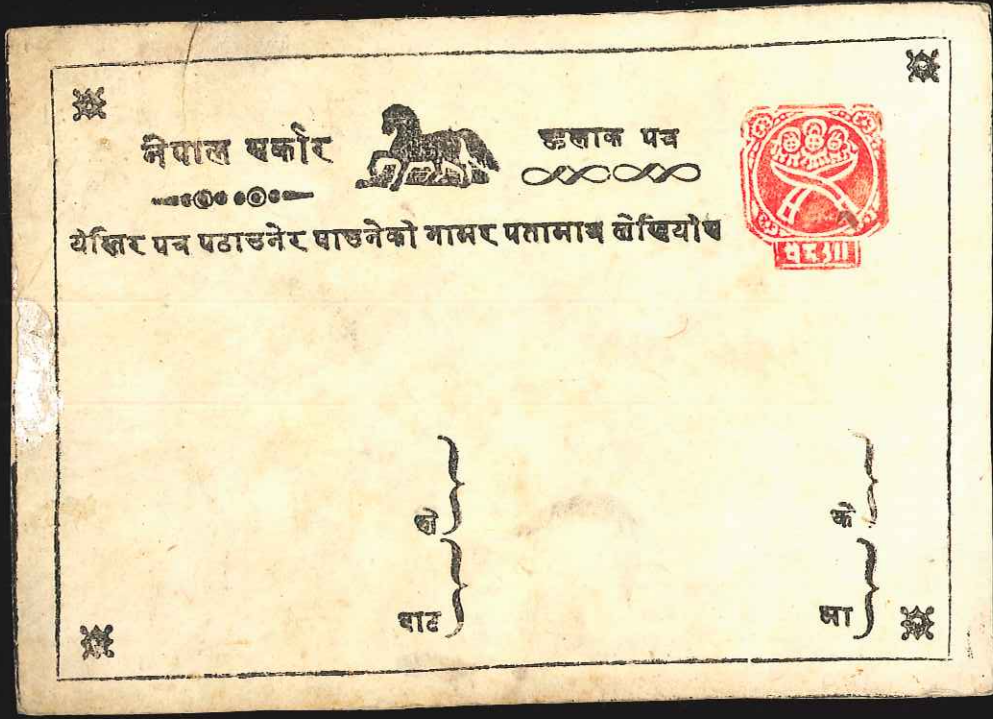 नेपाल सर्कार हलाक पत्र
येस्तिर पत्र पठाउनेर पाउनेको नामर पतामात्र लेखियोस
को को
बाट मा